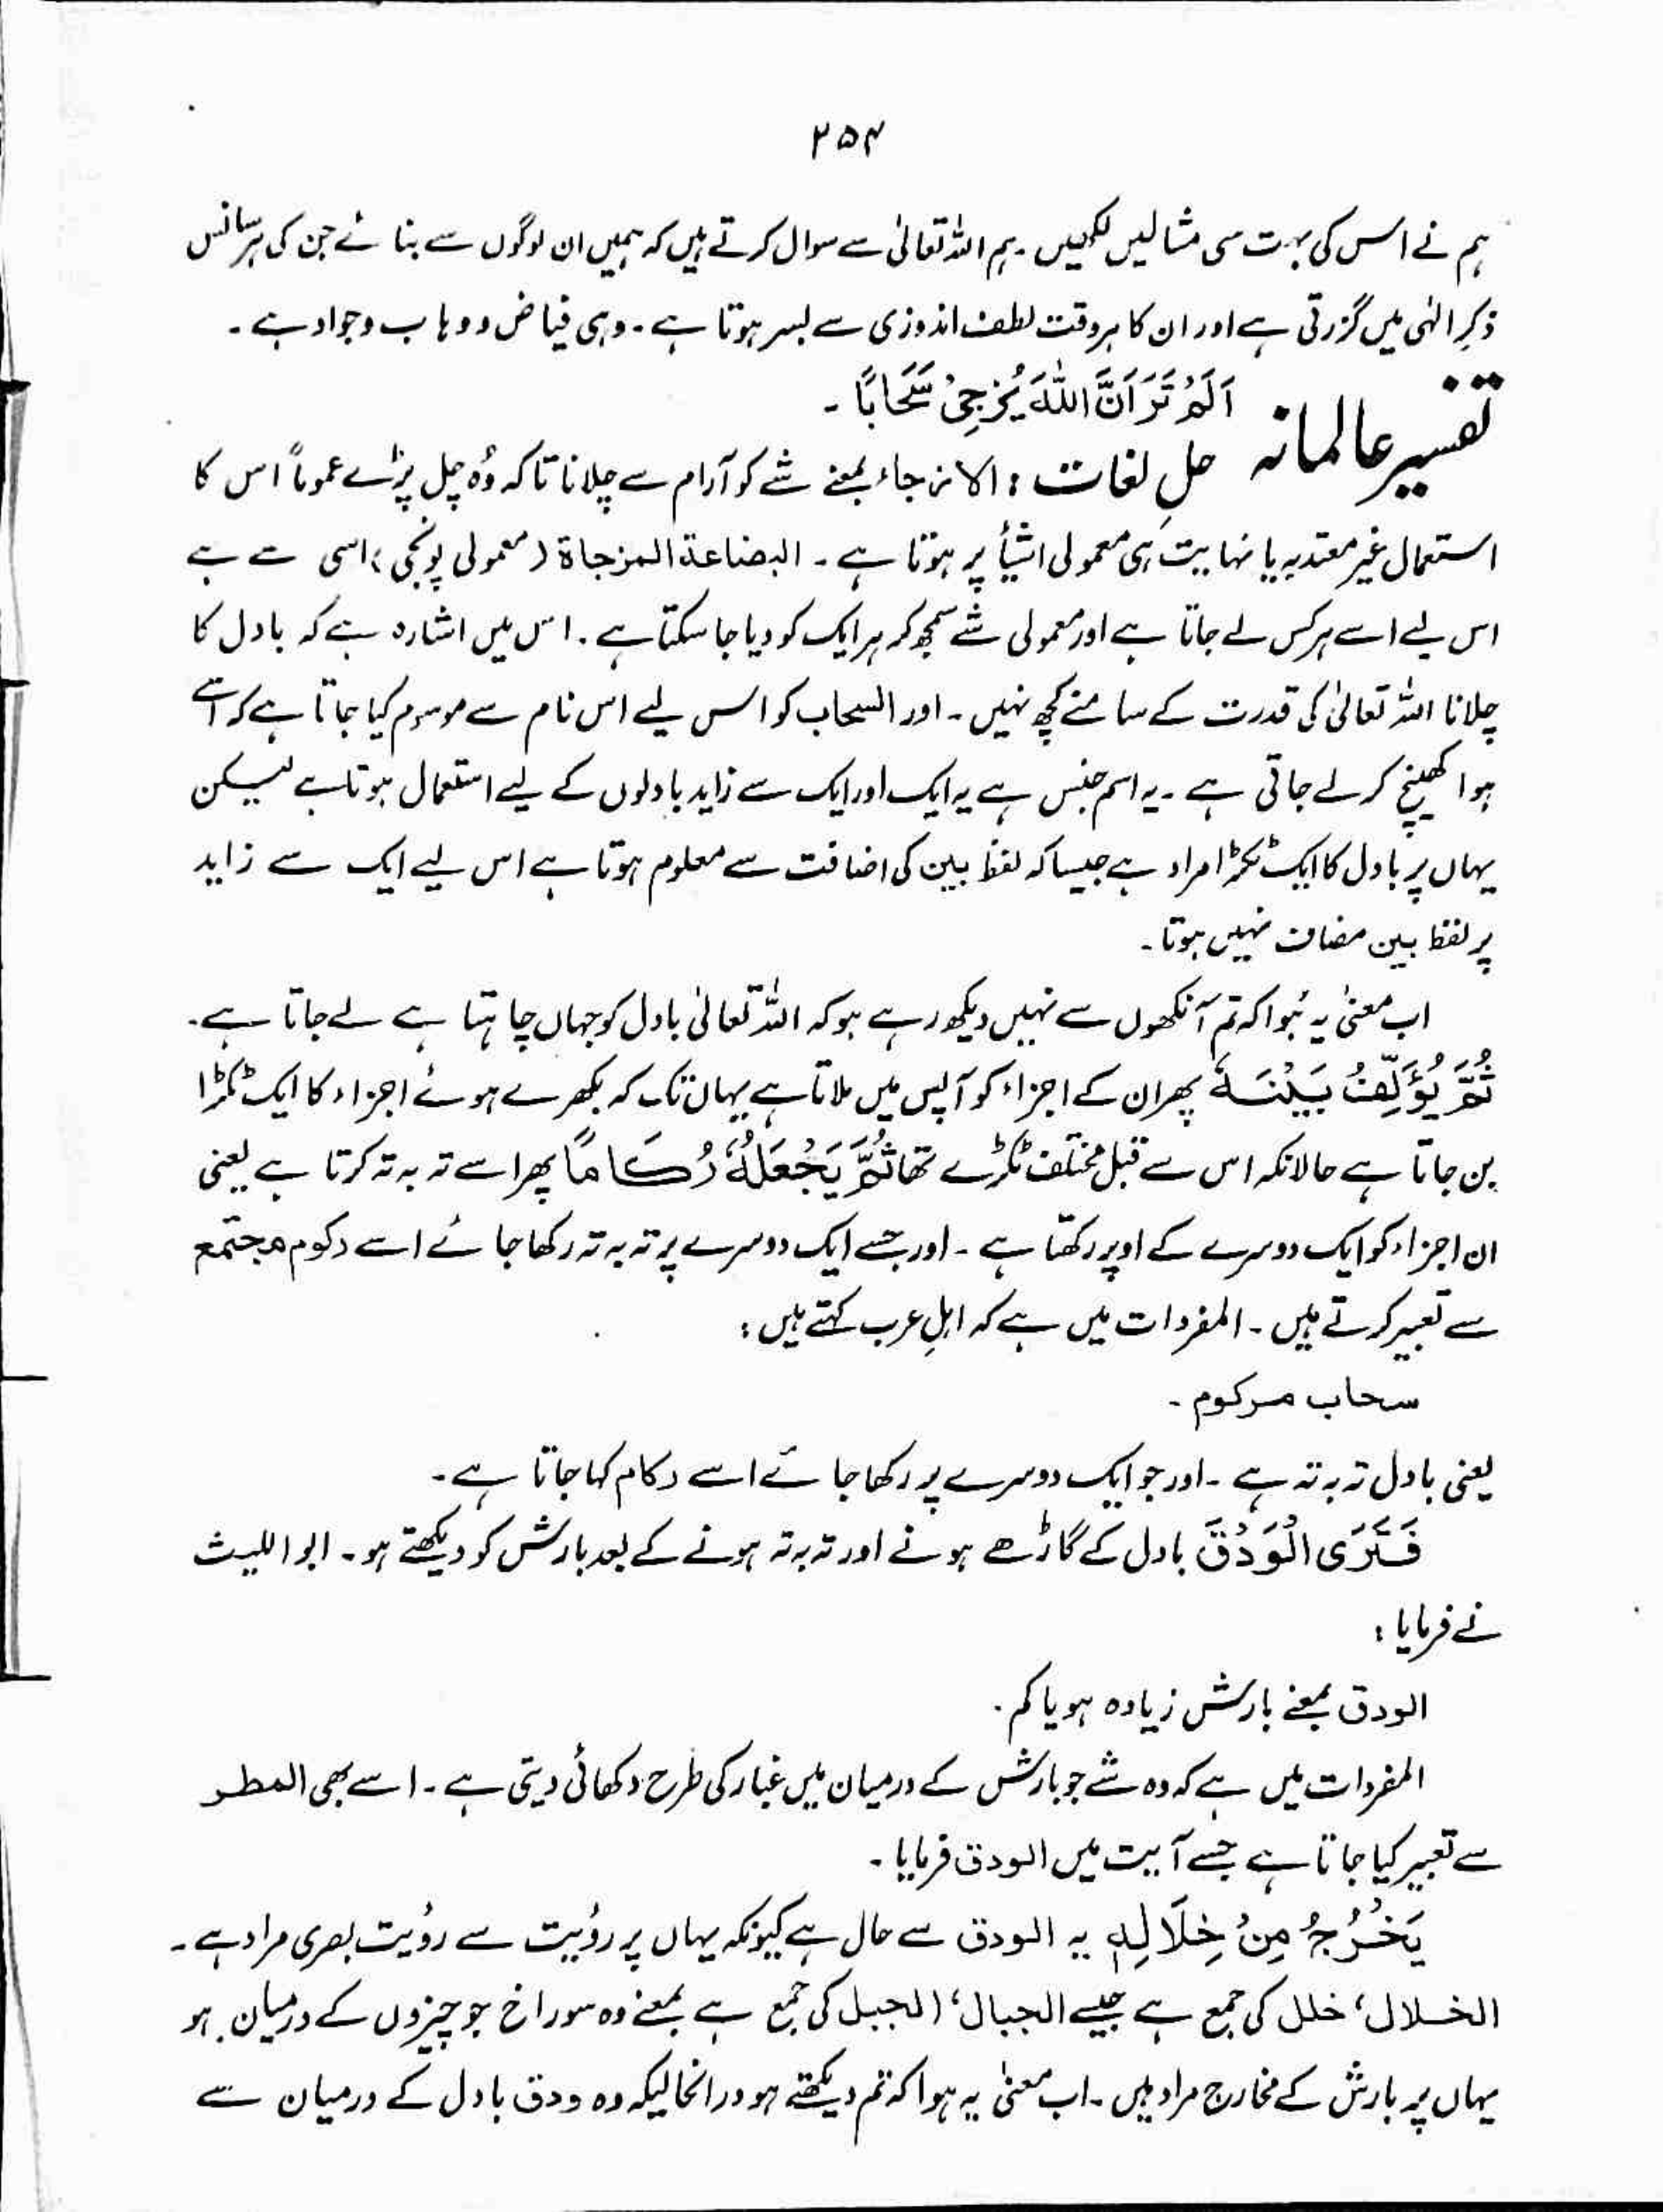 ۲۵۴
ہم نے اس کی بہت سی مثالیں لکھیں ۔ ہم اللہ تعالیٰ سے سوال کرتے ہیں کہ ہمیں ان لوگوں سے بنائے جن کی ہر سانس
ذکرِ الٰہی میں گزرتی ہے اور ان کا ہر وقت لطف اندوزی سے بسر ہوتا ہے ۔ وہی فیاض و وہاب و جواد ہے ۔
تفسیر عالمانہ اَلَمْ تَرَ اَنَّ اللّٰہَ یُزْجِیْ سَحَابًا ۔
حلِ لغات : الازجاء بمعنے شے کو آرام سے چلانا تاکہ وُہ چل پڑے عموماً اس کا
استعمال غیر معتد بہ یا نہایت ہی معمولی اشیأ پر ہوتا ہے ۔ البضاعۃ المزجاۃ (معمولی پونجی) اسی سے ہے
اس لیے اسے ہر کس لے جاتا ہے اور معمولی شے سمجھ کر ہر ایک کو دیا جا سکتا ہے ۔ اس میں اشارہ ہے کہ بادل کا
چلانا اللہ تعالیٰ کی قدرت کے سامنے کچھ نہیں ۔ اور السحاب کو اس لیے اس نام سے موسوم کیا جاتا ہے کہ اسے
ہوا کھینچ کر لے جاتی ہے ۔ یہ اسم جنس ہے یہ ایک اور ایک سے زاید بادلوں کے لیے استعمال ہوتا ہے لیکن
یہاں پر بادل کا ایک ٹکڑا مراد ہے جیسا کہ لفظ بین کی اضافت سے معلوم ہوتا ہے اس لیے ایک سے زاید
پر لفظ بین مضاف نہیں ہوتا ۔
اب معنیٰ یہ ہُوا کہ تم آنکھوں سے نہیں دیکھ رہے ہو کہ اللہ تعالیٰ بادل کو جہاں چاہتا ہے لے جاتا ہے ۔
ثُمَّ یُؤَلِّفُ بَیْنَہٗ پھر ان کے اجزاء کو آپس میں ملاتا ہے یہاں تک کہ بکھرے ہوئے اجزاء کا ایک ٹکڑا
بن جاتا ہے حالانکہ اس سے قبل مختلف ٹکڑے تھا ثُمَّ یَجْعَلُہٗ رُکَامًا پھر اسے تہ بہ تہ کرتا ہے یعنی
ان اجزاء کو ایک دوسرے کے اوپر رکھتا ہے ۔ اور جسے ایک دوسرے پر تہ بہ تہ رکھا جائے اسے رکوم مجتمع
سے تعبیر کرتے ہیں ۔ المفردات میں ہے کہ اہلِ عرب کہتے ہیں :
سحاب مرکوم ۔
یعنی بادل تہ بہ تہ ہے ۔ اور جو ایک دوسرے پر رکھا جائے اسے رکام کہا جاتا ہے ۔
فَتَرَی الْوَدْقَ بادل کے گاڑھے ہونے اور تہ بہ تہ ہونے کے بعد بارش کو دیکھتے ہو ۔ ابو اللیث
نے فرمایا :
الودق بمعنے بارش زیادہ ہو یا کم ۔
المفردات میں ہے کہ وہ شے جو بارش کے درمیان میں غبار کی طرح دکھائی دیتی ہے ۔ اسے بھی المطر
سے تعبیر کیا جاتا ہے جسے آیت میں الودق فرمایا ۔
یَخْرُجُ مِنْ خِلَالِہٖ یہ الودق سے حال ہے کیونکہ یہاں پر رؤیت سے رؤیت بصری مراد ہے ۔
الخلال، خلل کی جمع ہے جیسے الجبال، الجبل کی جمع ہے بمعنے وہ سوراخ جو چیزوں کے درمیان ہو
یہاں پر بارش کے مخارج مراد ہیں ۔ اب معنیٰ یہ ہوا کہ تم دیکھتے ہو درانحالیکہ وہ ودق بادل کے درمیان سے